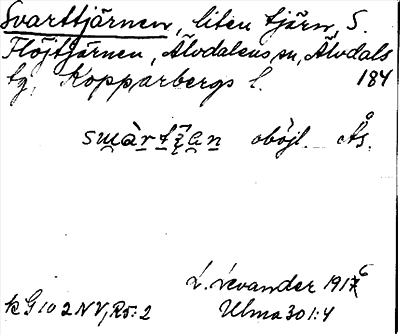 Svarttjärnen, liten tjärn, S.
Flöjtjärnen, Älvdalens sn, Älvdals
tg, Kopparbergs l. 184
smàrtʃän oböjl. Ås.
L. Levander 1916
kG 10 2 NV, R5:2 Ulma 301:4